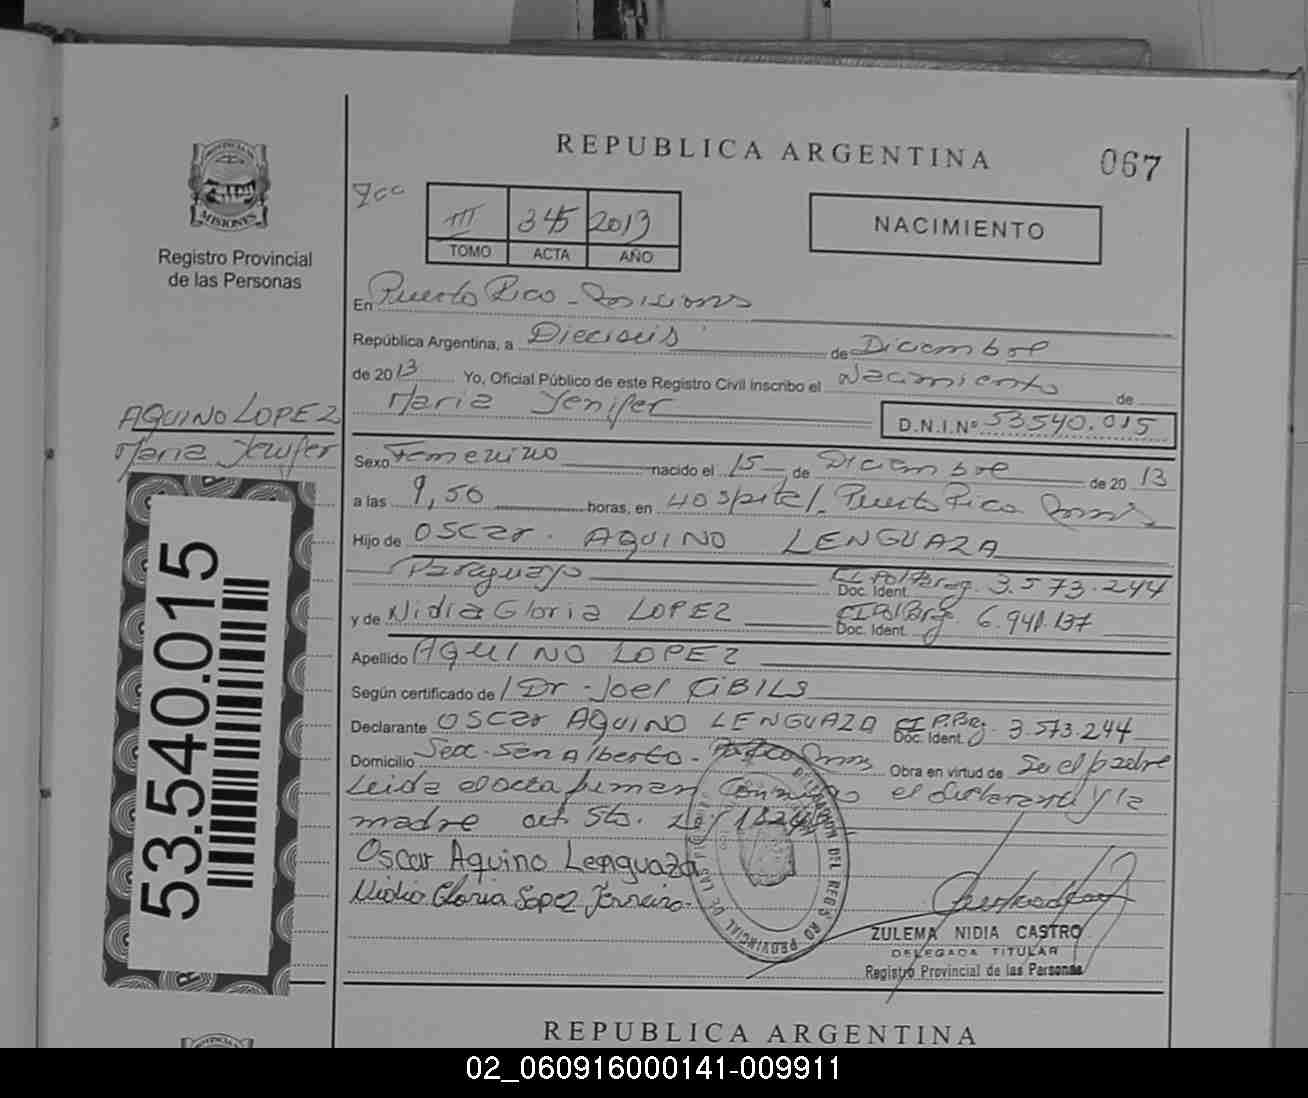 REPUBLICA ARGENTINA
067
PROVINCIA DE
MISIONES
Registro Provincial
de las Personas
III 345 2013
TOMO ACTA AÑO
NACIMIENTO
En Puerto Rico - Misiones
República Argentina, a Dieciseis de Diciembre
de 2013 Yo, Oficial Público de este Registro Civil inscribo el Nacimiento de
Maria Yenifer D.N.I.Nº 53540.015
AQUINO LOPEZ
Maria Yenifer
Sexo Femenino nacido el 15 de Diciembre de 20 13
a las 9,50 horas, en Hospital Puerto Rico Mnes
Hijo de Oscar AQUINO LENGUAZA
Paraguayo Doc. Ident. CI Pol Parag. 3.573.244
y de Nidia Gloria LOPEZ Doc. Ident. CI Pol Parg 6.941.137
Apellido AQUINO LOPEZ
Según certificado de Dr. Joel CIBILS
Declarante OSCAR AQUINO LENGUAZA Doc. Ident. CI P. Parg. 3.573.244
Domicilio Sec. San Alberto - Pto Rico Mnes Obra en virtud de Ser el padre
Leida el acta firman conmigo el declarante y la
madre art.
Oscar Aquino Lenguaza
Nidia Gloria Lopez
53.540.015
ZULEMA NIDIA CASTRO
DELEGADA TITULAR
Registro Provincial de las Personas
REPUBLICA ARGENTINA
02_060916000141-009911